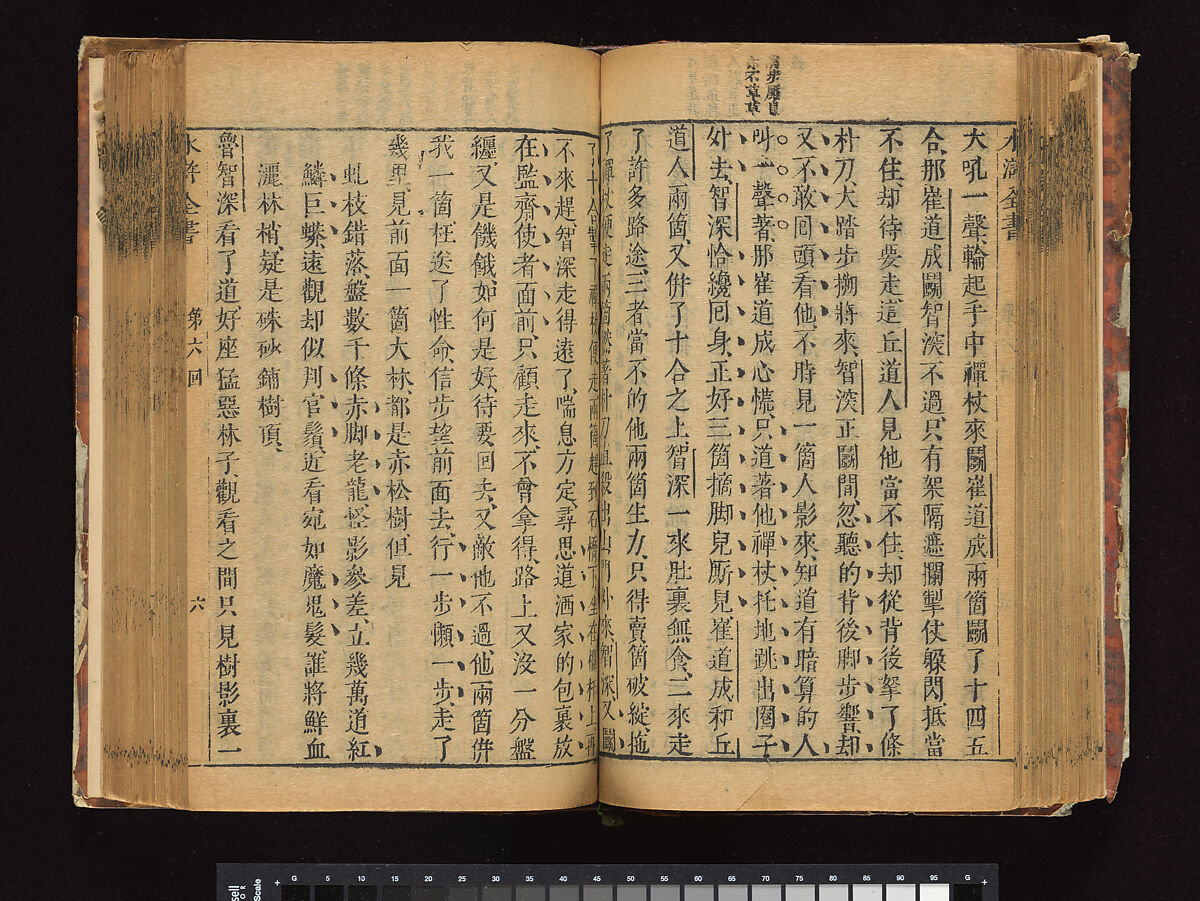 水滸全書
大吼一聲、輪起手中禪杖來鬬崔道成、兩箇鬬了十四五
合、那崔道成鬬智深不過、只有架隔遮攔、掣仗躲閃、抵當
不住、却待要走、這丘道人見他當不住、却從背後拏了條
朴刀、大踏步搠將來、智深正鬬間、忽聽的背後脚步響、却
又不敢回頭看他、不時見一箇人影來、知道有暗算的人、
叫一聲著、那崔道成心慌、只道著他禪杖、托地跳出圈子
外去、智深恰纔回身、正好三箇摘脚兒厮見、崔道成和丘
道人兩箇、又併了十合之上、智深一來肚裏無食、二來走
了許多路途、三者當不的他兩箇生力、只得賣箇破綻、拖
了禪杖便走、兩箇撚著朴刀、直殺出山門外來、智深又鬬
不草草
了十合、掣了禪杖便走、兩箇趕到石橋下、坐在欄杆上、再
不來趕、智深走得遠了、喘息方定、尋思道、洒家的包裹放
在監齋使者面前、只顧走來、不曾拿得、路上又沒一分盤
纏、又是饑餓、如何是好、待要回去、又敵他不過、他兩箇併
我一箇、枉送了性命、信步望前面去、行一步懶一步、走了
幾里、見前面一箇大林、都是赤松樹、但見
虬枝錯落、盤數千條赤脚老龍、怪影參差、立幾萬道紅
鱗巨蟒、遠觀却似判官鬚、近看宛如魔鬼髮、誰將鮮血
灑林梢、疑是硃砂鋪樹頂、
魯智深看了道、好座猛惡林子、觀看之間、只見樹影裏一
水滸全書 第六回 六